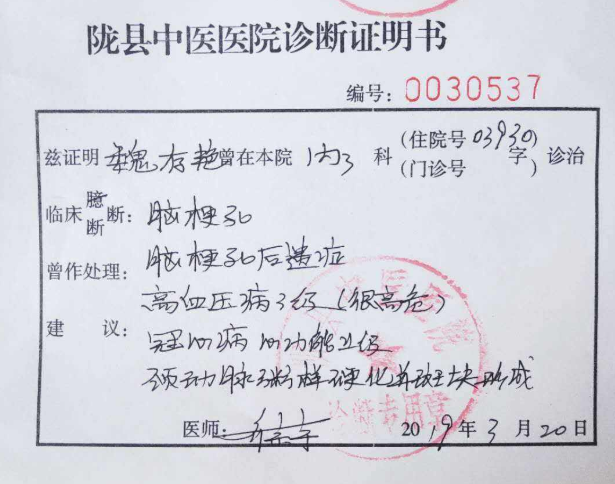 陇县中医医院诊断证明书
编号：0030537
兹证明 魏存艳 曾在本院 内3 科 (住院号 03930) (门诊号 字 ) 诊治
临床臆断断：脑梗死
曾作处理：脑梗死后遗症
高血压病3级（很高危）
建 议：冠心病 心功能Ⅱ级
颈动脉粥样硬化并斑块形成
诊断专用章
医师： 2019年3月20日